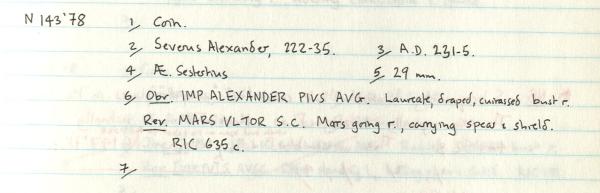 N 143'78 1, Coin.
2, Severus Alexander, 222-35. 3, A.D. 231-5.
4, Æ. Sestertius 5, 29 mm.
6, Obv. IMP ALEXANDER PIVS AVG. Laureate, draped, cuirassed bust r.
Rev. MARS VLTOR S.C. Mars going r., carrying spear & shield.
RIC 635 c.
7,